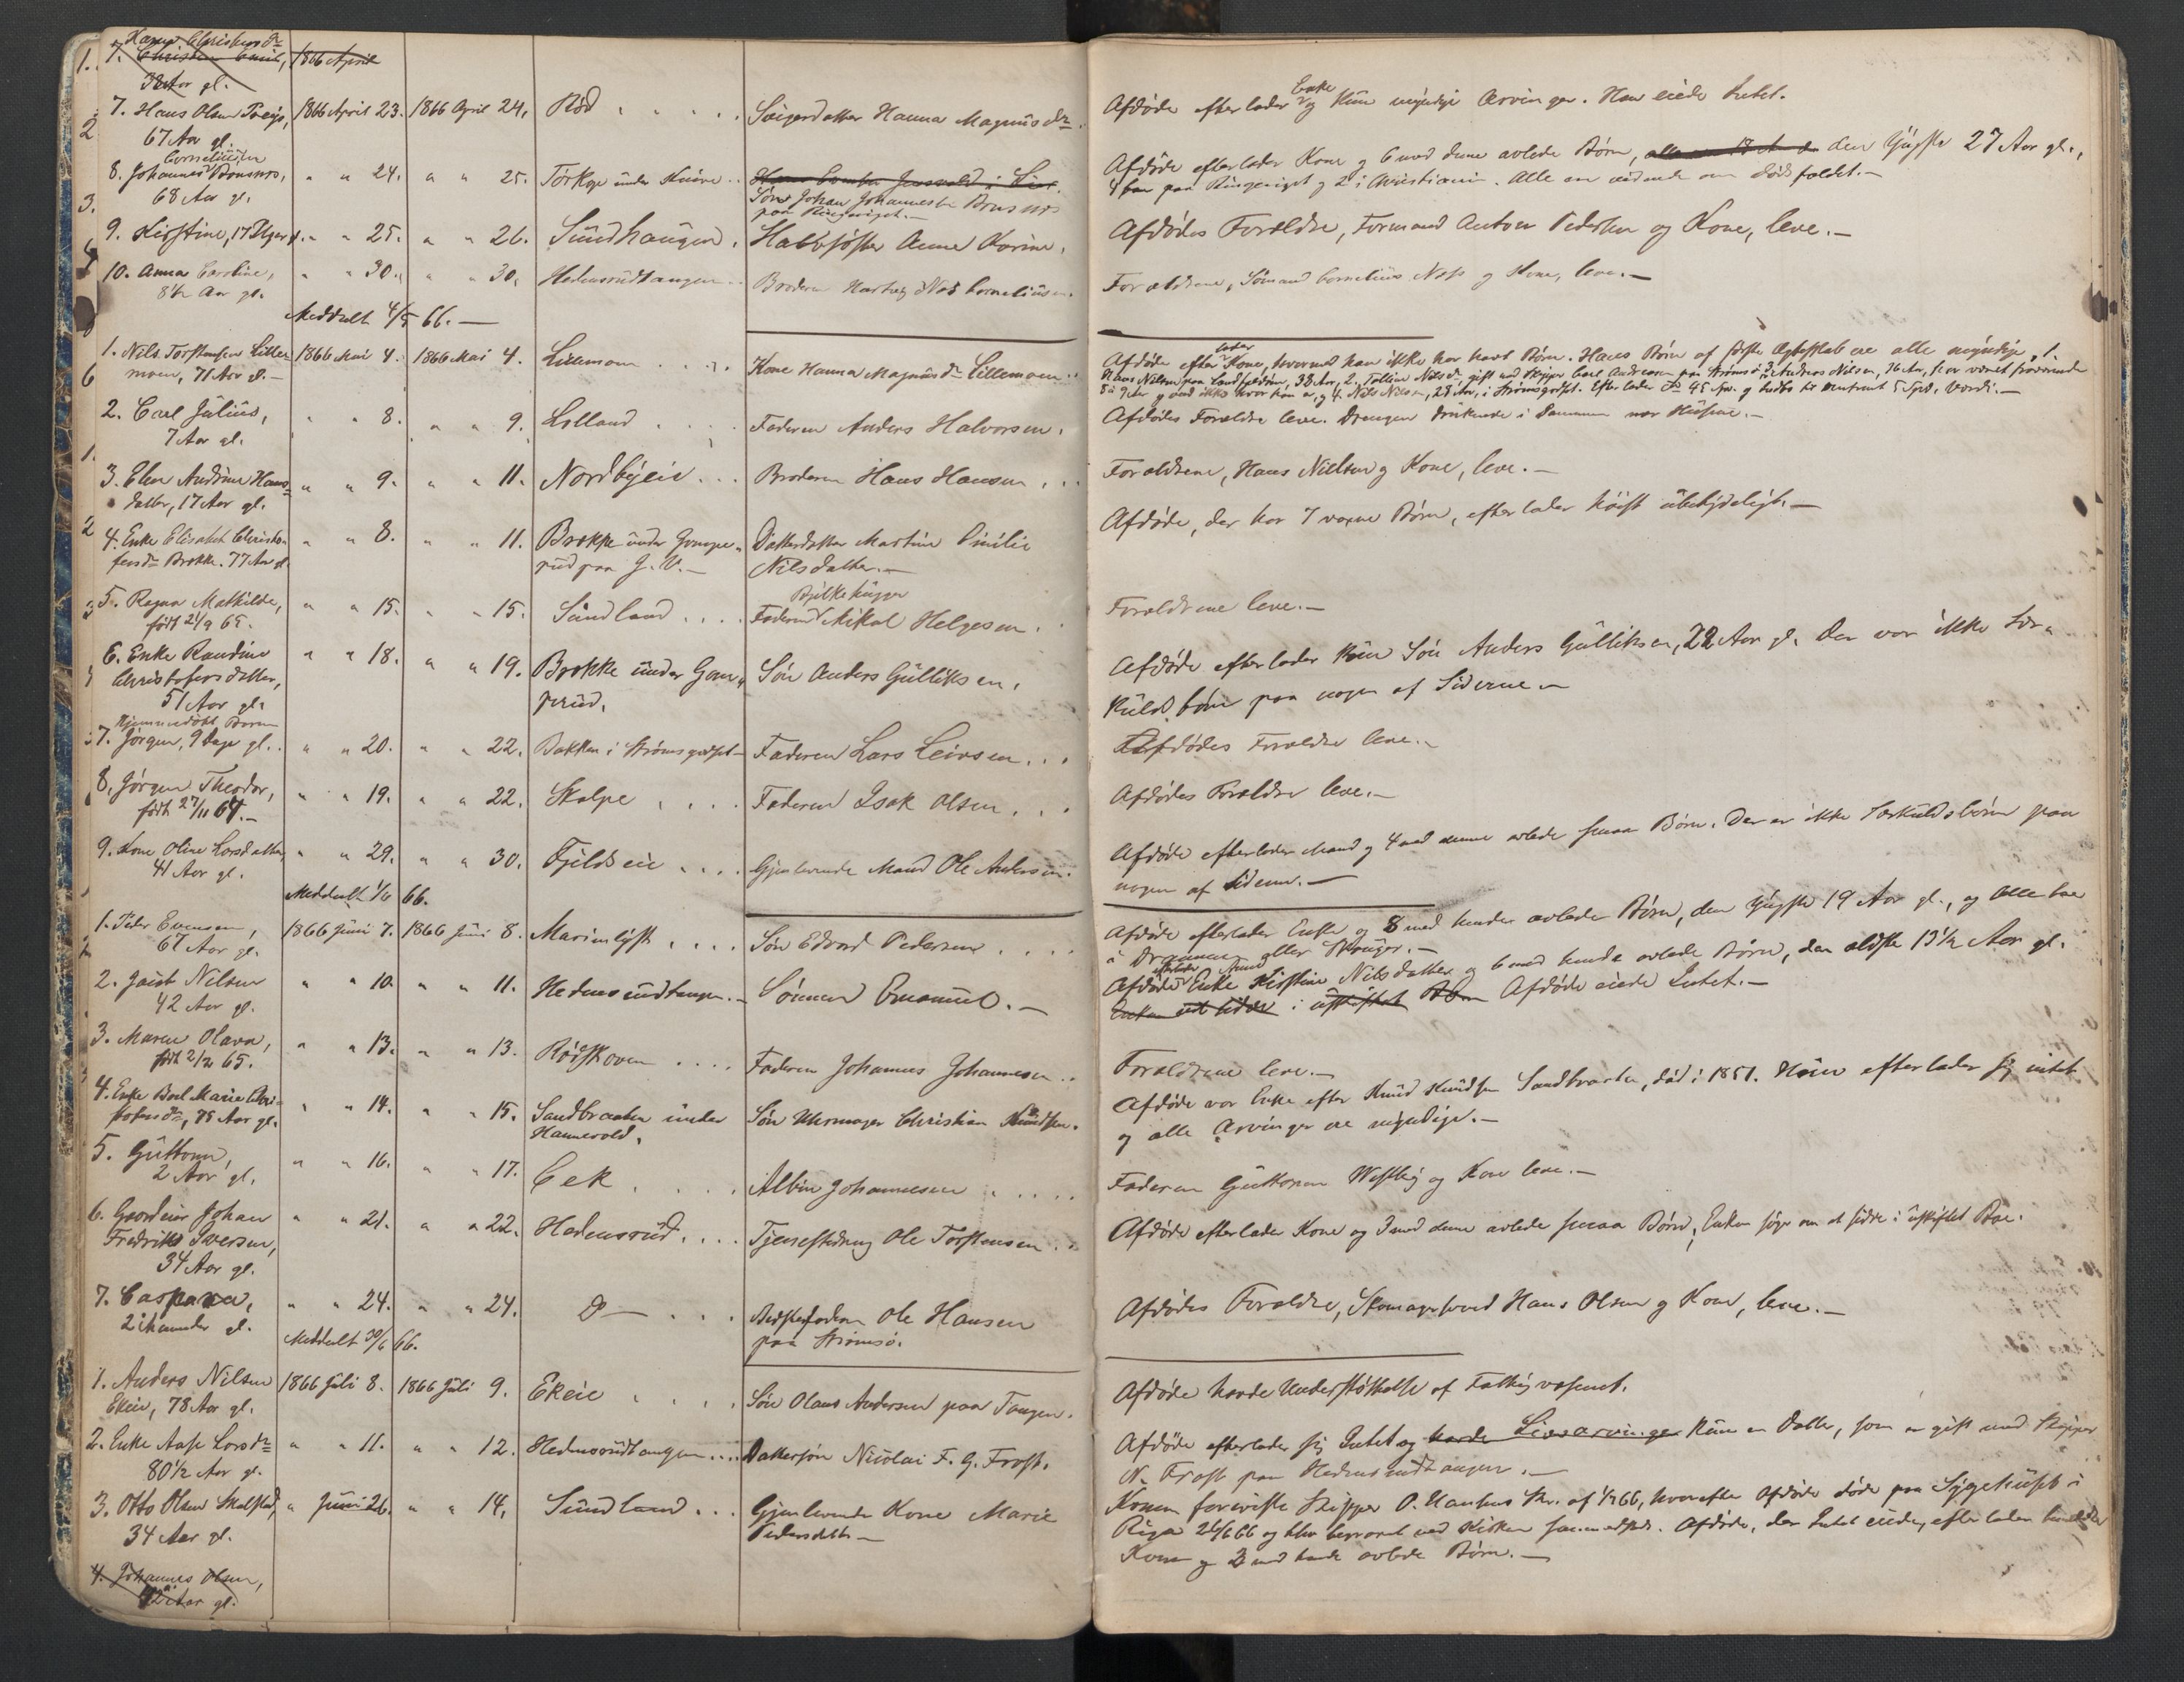 Christen Emil, 1866 April
38 Aar gl.
7. Hans Olsen 1866 April 23. 1866 April 24. Rød Svigerdatter Hanna Magnusdr. Afdøde efterlader Enke og kun myndige Arvinger. Han eiede Intet.
67 Aar gl.
8. Johannes Corneliussen " " 24. " " 25. Tørkop under Søn Johan Johannesen Afdøde efterlader Kone og 6 med denne avlede Børn, den yngste 27 Aar gl.,
68 Aar gl. paa Ringeriget.— 4 paa Ringeriget og 2 i Christiania. Alle ere vidende om Dødsfaldet.—
9. Kirstine, 17 Uger gl. " " 25. " " 26. Sundhaugen. Halvsøster Anne Karine. Afdødes Forældre, Formand Anton Pedersen og Kone, leve.—
10. Anna Caroline, " " 30. " " 30. Hedensrudtangen Broderen Corneliusen. Forældrene, Sømand Cornelius Næss og Kone, leve.—
8½ Aar gl.
Meddelt 4/5 66.—
1. Nils Torstensen Lille- 1866 Mai 4. 1866 Mai 4. Lillemoen Kone Hanna Magnusdr. Lillemoen Afdøde efterlader Kone, hvormed han ikke har havt Børn. Hans Børn af første Ægteskab ere alle myndige, 1.
moen, 71 Aar gl.— Hans Nilsen paa Landfaldøen, 38 Aar, 2. Nilsdr. gift med Skipper Carl Andresen paa Strømsø, 3. Andreas Nilsen, 36 Aar, har været fraværende
og 4. Nils Nilsen, 28 Aar, i Strømsgodset.
2. Carl Julius, " " 8. " " 9. Lolland Faderen Anders Halvorsen. Afdødes Forældre leve. Drengen druknede i Dammen nær Husene.—
7 Aar gl.
3. Elen Andrine Hans- " " 9. " " 11. Nordbyeie Broderen Hans Hansen Forældrene, Hans Nielsen og Kone, leve.—
datter, 17 Aar gl.
4. Enke Elisabet Christof- " " 8. " " 11. Brokke under Gompe- Datterdatter Martine Emilie Afdøde, der har 7 voxne Børn, efterlader høist ubetydeligt.—
fersdr. Brokke. 77 Aar gl. rud paa G. V.— Nilsdatter.—
5. Ragna Mathilde, " " 15. " " 15. Sundland Faderen Bjelkehugger Mikal Helgesen. Forældrene leve.—
født 21/9 65.
6. Enke Randine " " 18. " " 19. Brokke under Gom- Søn Anders Gulliksen. Afdøde efterlader kun Søn Anders Gulliksen, 22 Aar gl. Der var ikke Sær-
Christofersdatter, perud. kuldsbørn paa nogen af Siderne.—
51 Aar gl.
7. Hjemmedøbt Barn
Jørgen, 9 Dage gl. " " 20. " " 22. Bakken i Strømsgodset Faderen Lars Leirsen Afdødes Forældre leve.—
8. Jørgen Theodor, " " 19. " " 22. Skalpe Faderen Isak Olsen Afdødes Forældre leve.—
født 27/11 64.—
9. Kone Oline Larsdatter, " " 29. " " 30. Fjeldseie Gjenlevende Mand Ole Andersen. Afdøde efterlader Mand og 4 med denne avlede smaa Børn. Der er ikke Særkuldsbørn paa
41 Aar gl. nogen af Siderne.—
Meddelt 1/6 66.
1. Peder Evensen, 1866 Juni 7. 1866 Juni 8. Marienlyst Søn Edvard Pedersen Afdøde efterlader Enke og 8 med hende avlede Børn, den yngste 19 Aar gl., og alle boe
67 Aar gl. i Drammen eller Skouger.—
2. Nilsen " " 10. " " 11. Hedensrudtangen.— Sønnen Emanuel.— Afdøde efterlader Enke Kirstine Nilsdatter og 6 med hende avlede Børn, den ældste 13½ Aar gl.
42 Aar gl. Afdøde eiede Intet.—
3. Maren Olava, " " 13. " " 13. Røiskoven Faderen Johannes Johannesen Forældrene leve.—
født 2/12 65.
4. Enke Boel Marie Chri- " " 14. " " 15. Sandbraaten under Søn Uhrmager Christian Knudsen. Afdøde var Enke efter Knud Knudsen Sandbraaten, død i 1851. Hun efterlader sig intet
stofersdr., 75 Aar gl. Hannevold. og alle Arvinger ere myndige.—
5. Guttorm, " " 16. " " 17. Eek Albin Johannesen Faderen Guttorm Westby og Kone leve.—
2 Aar gl.
6. Gaardeier Johan " " 21. " " 22. Hedensrud Tjenestedreng Ole Torstensen Afdøde efterlader Kone og 3 med denne avlede smaa Børn; Enken søger om at sidde i uskiftet Bo.
Fredrik Iversen,
34 Aar gl.
7. Caspara, " " 24. " " 24. Do— Bedstefaderen Ole Hansen Afdødes Forældre, Skomagersvend Hans Olsen og Kone, leve.—
2 Maaneder gl. paa Strømsø.
Meddelt 30/6 66.
1. Anders Nilsen 1866 Juli 8. 1866 Juli 9. Ekeie Søn Olaus Andersen paa Tangen. Afdøde havde Understøttelse af Fattigvæsenet.
Ekeie, 78 Aar gl.
2. Enke Aase Larsdr. " " 11. " " 12. Hedensrudtangen Dattersøn Nicolai F. G. Frost. Afdøde efterlader sig Intet og havde Livsarvinger kun en Datter, som er gift med Skipper
80½ Aar gl. N. Frost paa Hedensrudtangen.—
3. Otto Olsen Skalstad, " Juni 26. " " 14. Sundland Gjenlevende Kone Marie Konen foreviste Skipper O. Hansens Skr. af 1/7 66, hvorefter Afdøde døde paa Sygehuset i
34 Aar gl. Pedersdatter— Riga 26/6 66 og blev begravet ved Kirken sammesteds. Afdøde, der Intet eiede, efterlader
Kone og 3 med hende avlede Børn.—
4. Johannes Olsen,
42 Aar gl.